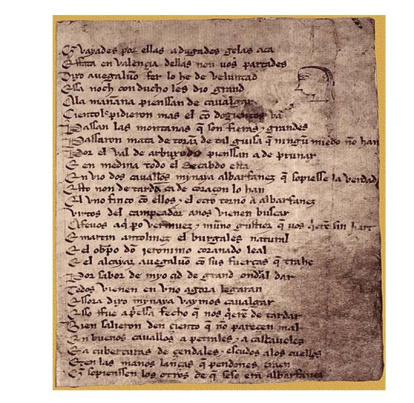 Q vayades por ellas adugades gelas aca
E ffata en valençia dellas non uos partades
Dixo auegaluon fer lo he de veluntad
Essa noch conducho les dio grand
Ala mañana pienssan de caualgar
Çientol pidieron mas el cõ dozientos va
Passan las montanas q̃ son fieras & grandes
Passaron mata de toranz de tal guisa q̃ ningũ miedo nõ han
Por el val de arbuxedo pienssan a deprunar
E en medina todo el Recabdo esta
Enuio dos caualłos mynaya albarfanez q̃ sopiesse la verdad
Esto non de tarda ca de coraçon lo han
El vno finco cõ ellos & el otro torno a albarfanez
Virtos del campeador anos vienen buscar
Afeuos aq̃ po vermuez & muño gustioz q̃ uos q̃eren sin hart
E martin antolinez el burgales natural
E el obpo dõ jeronimo coranado leal
E el alcayaz auegaluon cõ sus fuerças q̃ trahe
Por sabor de myo çid de grand ondral dar
Todos vienen en vno agora legaran
Essora dixo mynaya vaymos caualgar
Esso ffue apssa fecho q̃ nos q̃eren de tardar
Bien salieron den çiento q̃ nõ pareçen mal
En buenos cauallos a petrales & a cascaueles
E a cuberturas de çendales & escudos alos cuellos
E en las manos lanças q̃ pendones traen
Q sopienssen los otros de q̃ seso era albarfanez